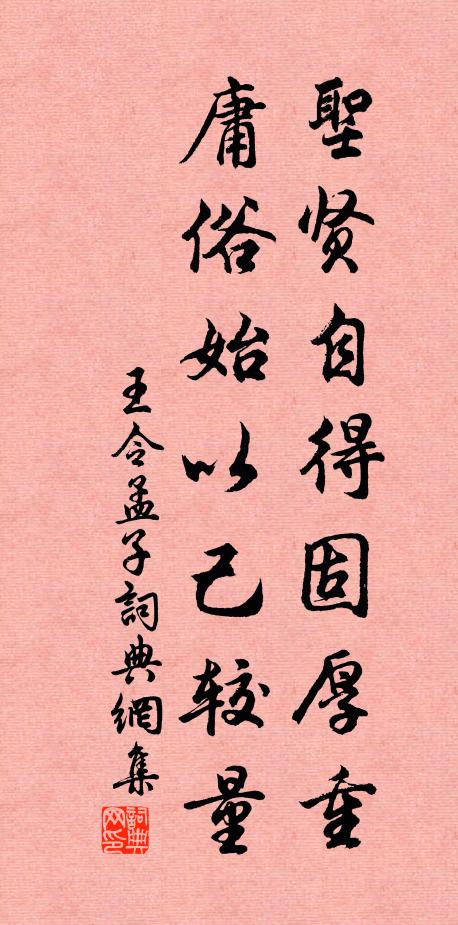 聖贤自得固厚重
庸俗始以己较量
王令孟子詞典網集
詞典网印